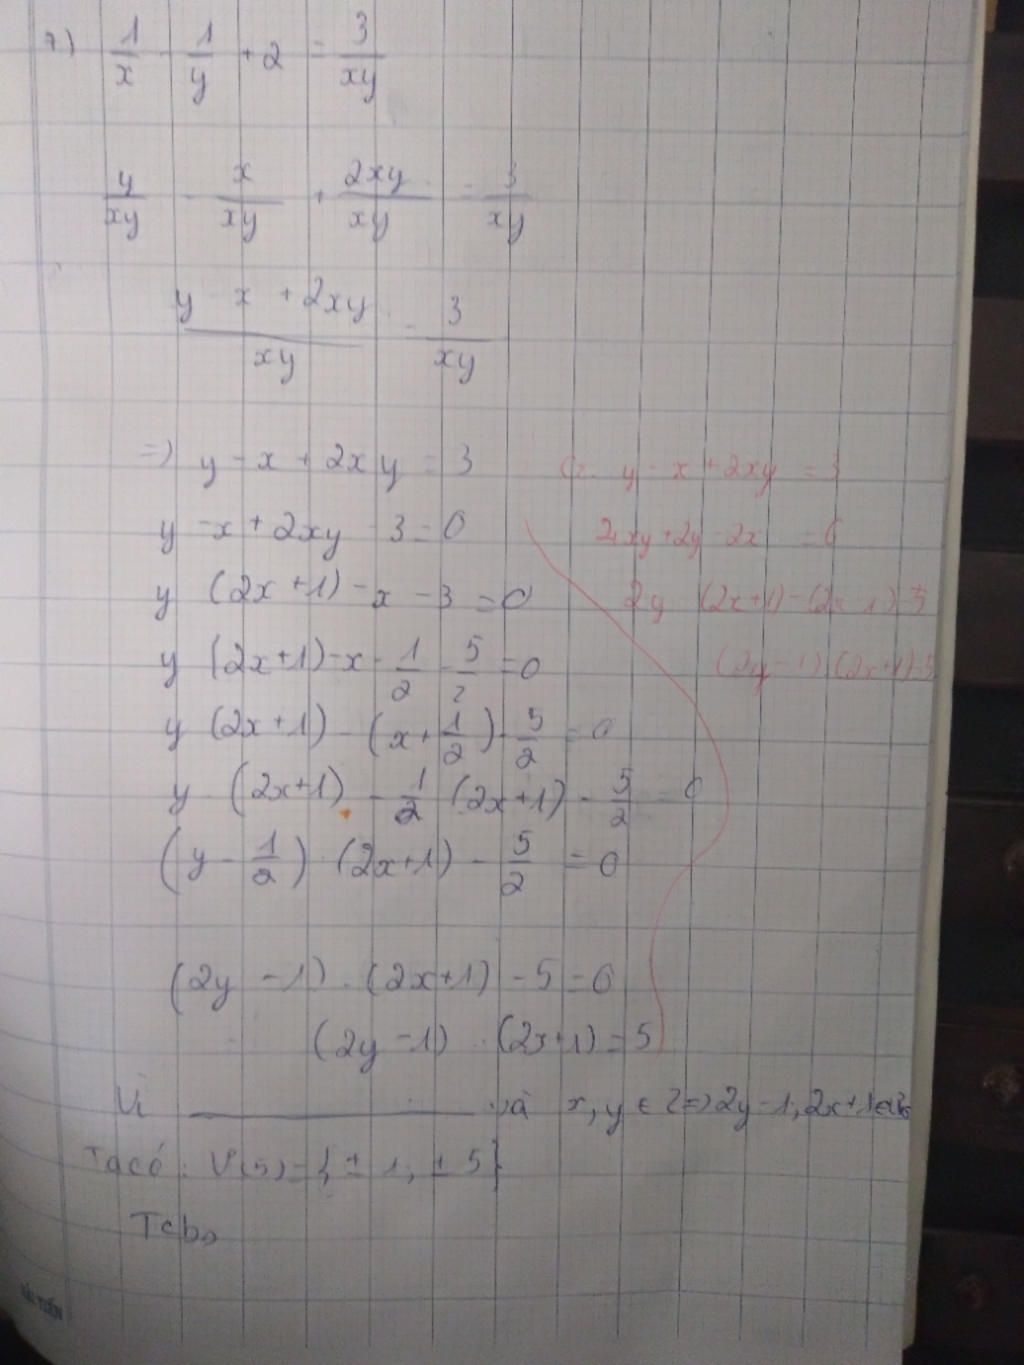 7) 1/x - 1/y + 2 = 3/xy
y/xy - x/xy + 2xy/xy = 3/xy
y - x + 2xy/xy = 3/xy
=> y - x + 2xy = 3
y - x + 2xy - 3 = 0
y (2x + 1) - x - 3 = 0
y (2x+1) - x - 1/2 - 5/2 = 0
y (2x+1) - (x + 1/2) - 5/2 = 0
y . (2x+1) - 1/2 (2x+1) - 5/2 = 0
(y - 1/2) . (2x+1) - 5/2 = 0
(2y - 1) . (2x+1) - 5 = 0
(2y - 1) . (2x+1) = 5
y - x + 2xy = 3
4xy + 2y - 2x = 6
2y (2x+1) - (2x-1) = 5
(2y - 1) (2x+1) = 5
Vì và x, y ∈ Z => 2y - 1, 2x + 1 ∈ Z
Ta có: Ư(5) = { ± 1, ± 5}
Tcb